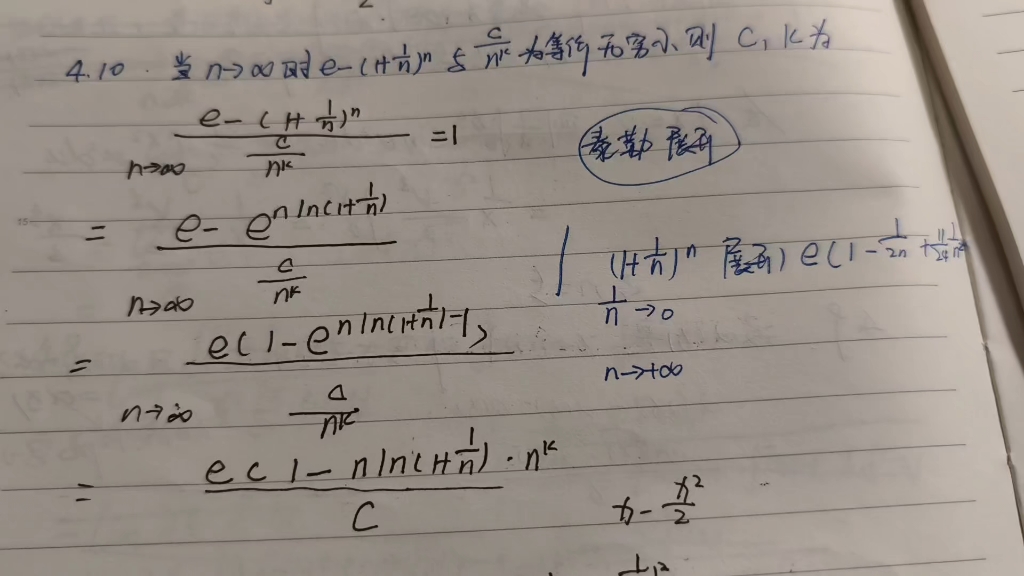 4.10. 当 n→∞ 时 e-(1+1/n)^n 与 c/n^k 为等价无穷小、则 C, K为
e-(1+1/n)^n
n→∞ c/n^k =1
泰勒展开
= e-e^{n ln(1+1/n)}
n→∞ c/n^k
(1+1/n)^n 展开) e(1-1/2n+11/24 1/n²
1/n→0
= e(1-e^{n ln(1+1/n)-1})
n→∞ c/n^k
n→+∞
= e(1-n ln(1+1/n)·n^k
C
x-x²/2